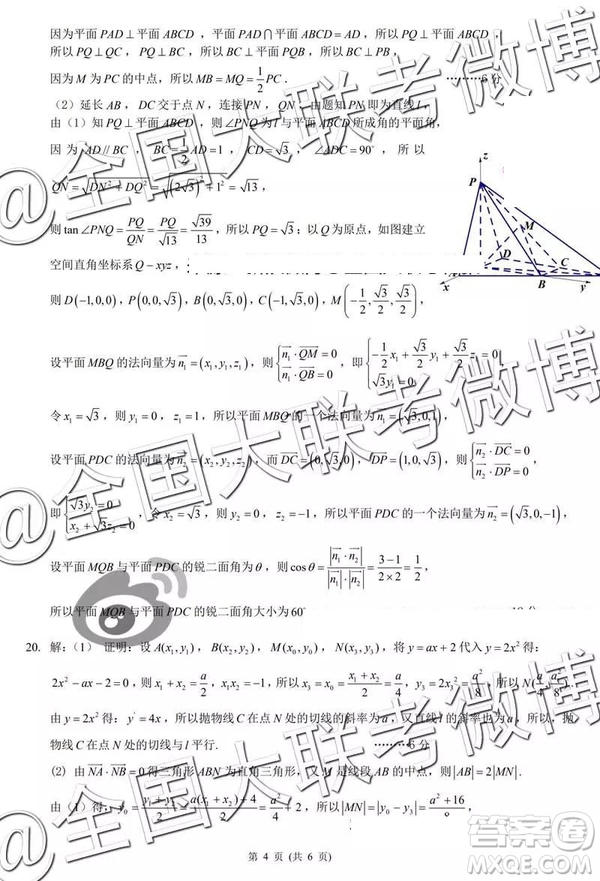 因为平面 PAD⊥平面 ABCD ，平面 PAD∩平面 ABCD = AD，所以 PQ⊥平面 ABCD ，
所以 PQ⊥QC ， PQ⊥BC ，所以 BC⊥平面 PQB，所以 BC⊥PB ，
因为 M 为 PC 的中点，所以 MB = MQ = 1/2 PC .
（2）延长 AB ， DC 交于点 N ，连接 PN ， QN ，由题知 PN 即为直线 l ，
由（1）知 PQ⊥平面 ABCD ，则 ∠PNQ 为 l 与平面 ABCD 所成角的平面角，
因为 AD // BC ， BC = 1/2 AD = 1 ， CD = √3 ， ∠ADC = 90° ，所以
QN = √(DN² + DQ²) = √((2√3)² + 1²) = √13 ，
则 tan∠PNQ = PQ/QN = PQ/√13 = √39/13 ，所以 PQ = √3 ；以 Q 为原点，如图建立
空间直角坐标系 Q - xyz ，
则 D(-1,0,0) ， P(0,0,√3) ， B(0,√3,0) ， C(-1,√3,0) ， M(-1/2, √3/2, √3/2) ，
设平面 MBQ 的法向量为 n₁ = (x₁, y₁, z₁) ，则 { n₁ · QM = 0
n₁ · QB = 0 ，即 { -1/2 x₁ + √3/2 y₁ + √3/2 z₁ = 0
√3 y₁ = 0
令 x₁ = √3 ，则 y₁ = 0 ， z₁ = 1 ，所以平面 MBQ 的一个法向量为 n₁ = (√3,0,1) ，
设平面 PDC 的法向量为 n₂ = (x₂, y₂, z₂) ，而 DC = (0,√3,0) ， DP = (1,0,√3) ，则 { n₂ · DC = 0
n₂ · DP = 0 ，
即 { √3 y₂ = 0
x₂ + √3 z₂ = 0 ，令 x₂ = √3 ，则 y₂ = 0 ， z₂ = -1 ，所以平面 PDC 的一个法向量为 n₂ = (√3,0,-1) ，
设平面 MQB 与平面 PDC 的锐二面角为 θ ，则 cosθ = |n₁ · n₂| / |n₁| · |n₂| = (3-1)/(2×2) = 1/2 ，
所以平面 MQB 与平面 PDC 的锐二面角大小为 60
20. 解：（1） 证明：设 A(x₁,y₁) ， B(x₂,y₂) ， M(x₀,y₀) ， N(x₃,y₃) ，将 y = ax + 2 代入 y = 2x² 得：
2x² - ax - 2 = 0 ，则 x₁ + x₂ = a/2 ，所以 x₃ = x₀ = (x₁ + x₂)/2 = a/4 ， y₃ = 2x₃² = a²/8 ，所以 N(a/4, a²/8) ，
由 y = 2x² 得： y′ = 4x ，所以抛物线 C 在点 N 处的切线的斜率为 a ，又直线 l 的斜率也为 a ，所以，抛
物线 C 在点 N 处的切线与 l 平行. ………6 分
（2）由 NA · NB = 0 得三角形 ABN 为直角三角形，又 M 是线段 AB 的中点，则 |AB| = 2|MN| .
由（1）得： y₀ = (y₁ + y₂)/2 = (a(x₁ + x₂) + 4)/2 = a²/4 + 2 ，所以 |MN| = |y₀ - y₃| = (a² + 16)/8 ，
第 4 页 (共 6 页)
z
P
M
D
C
B
x
y
@全国大联考微博
@全国大联考微博
@全国大联考微博
答案圈
MXQE.COM